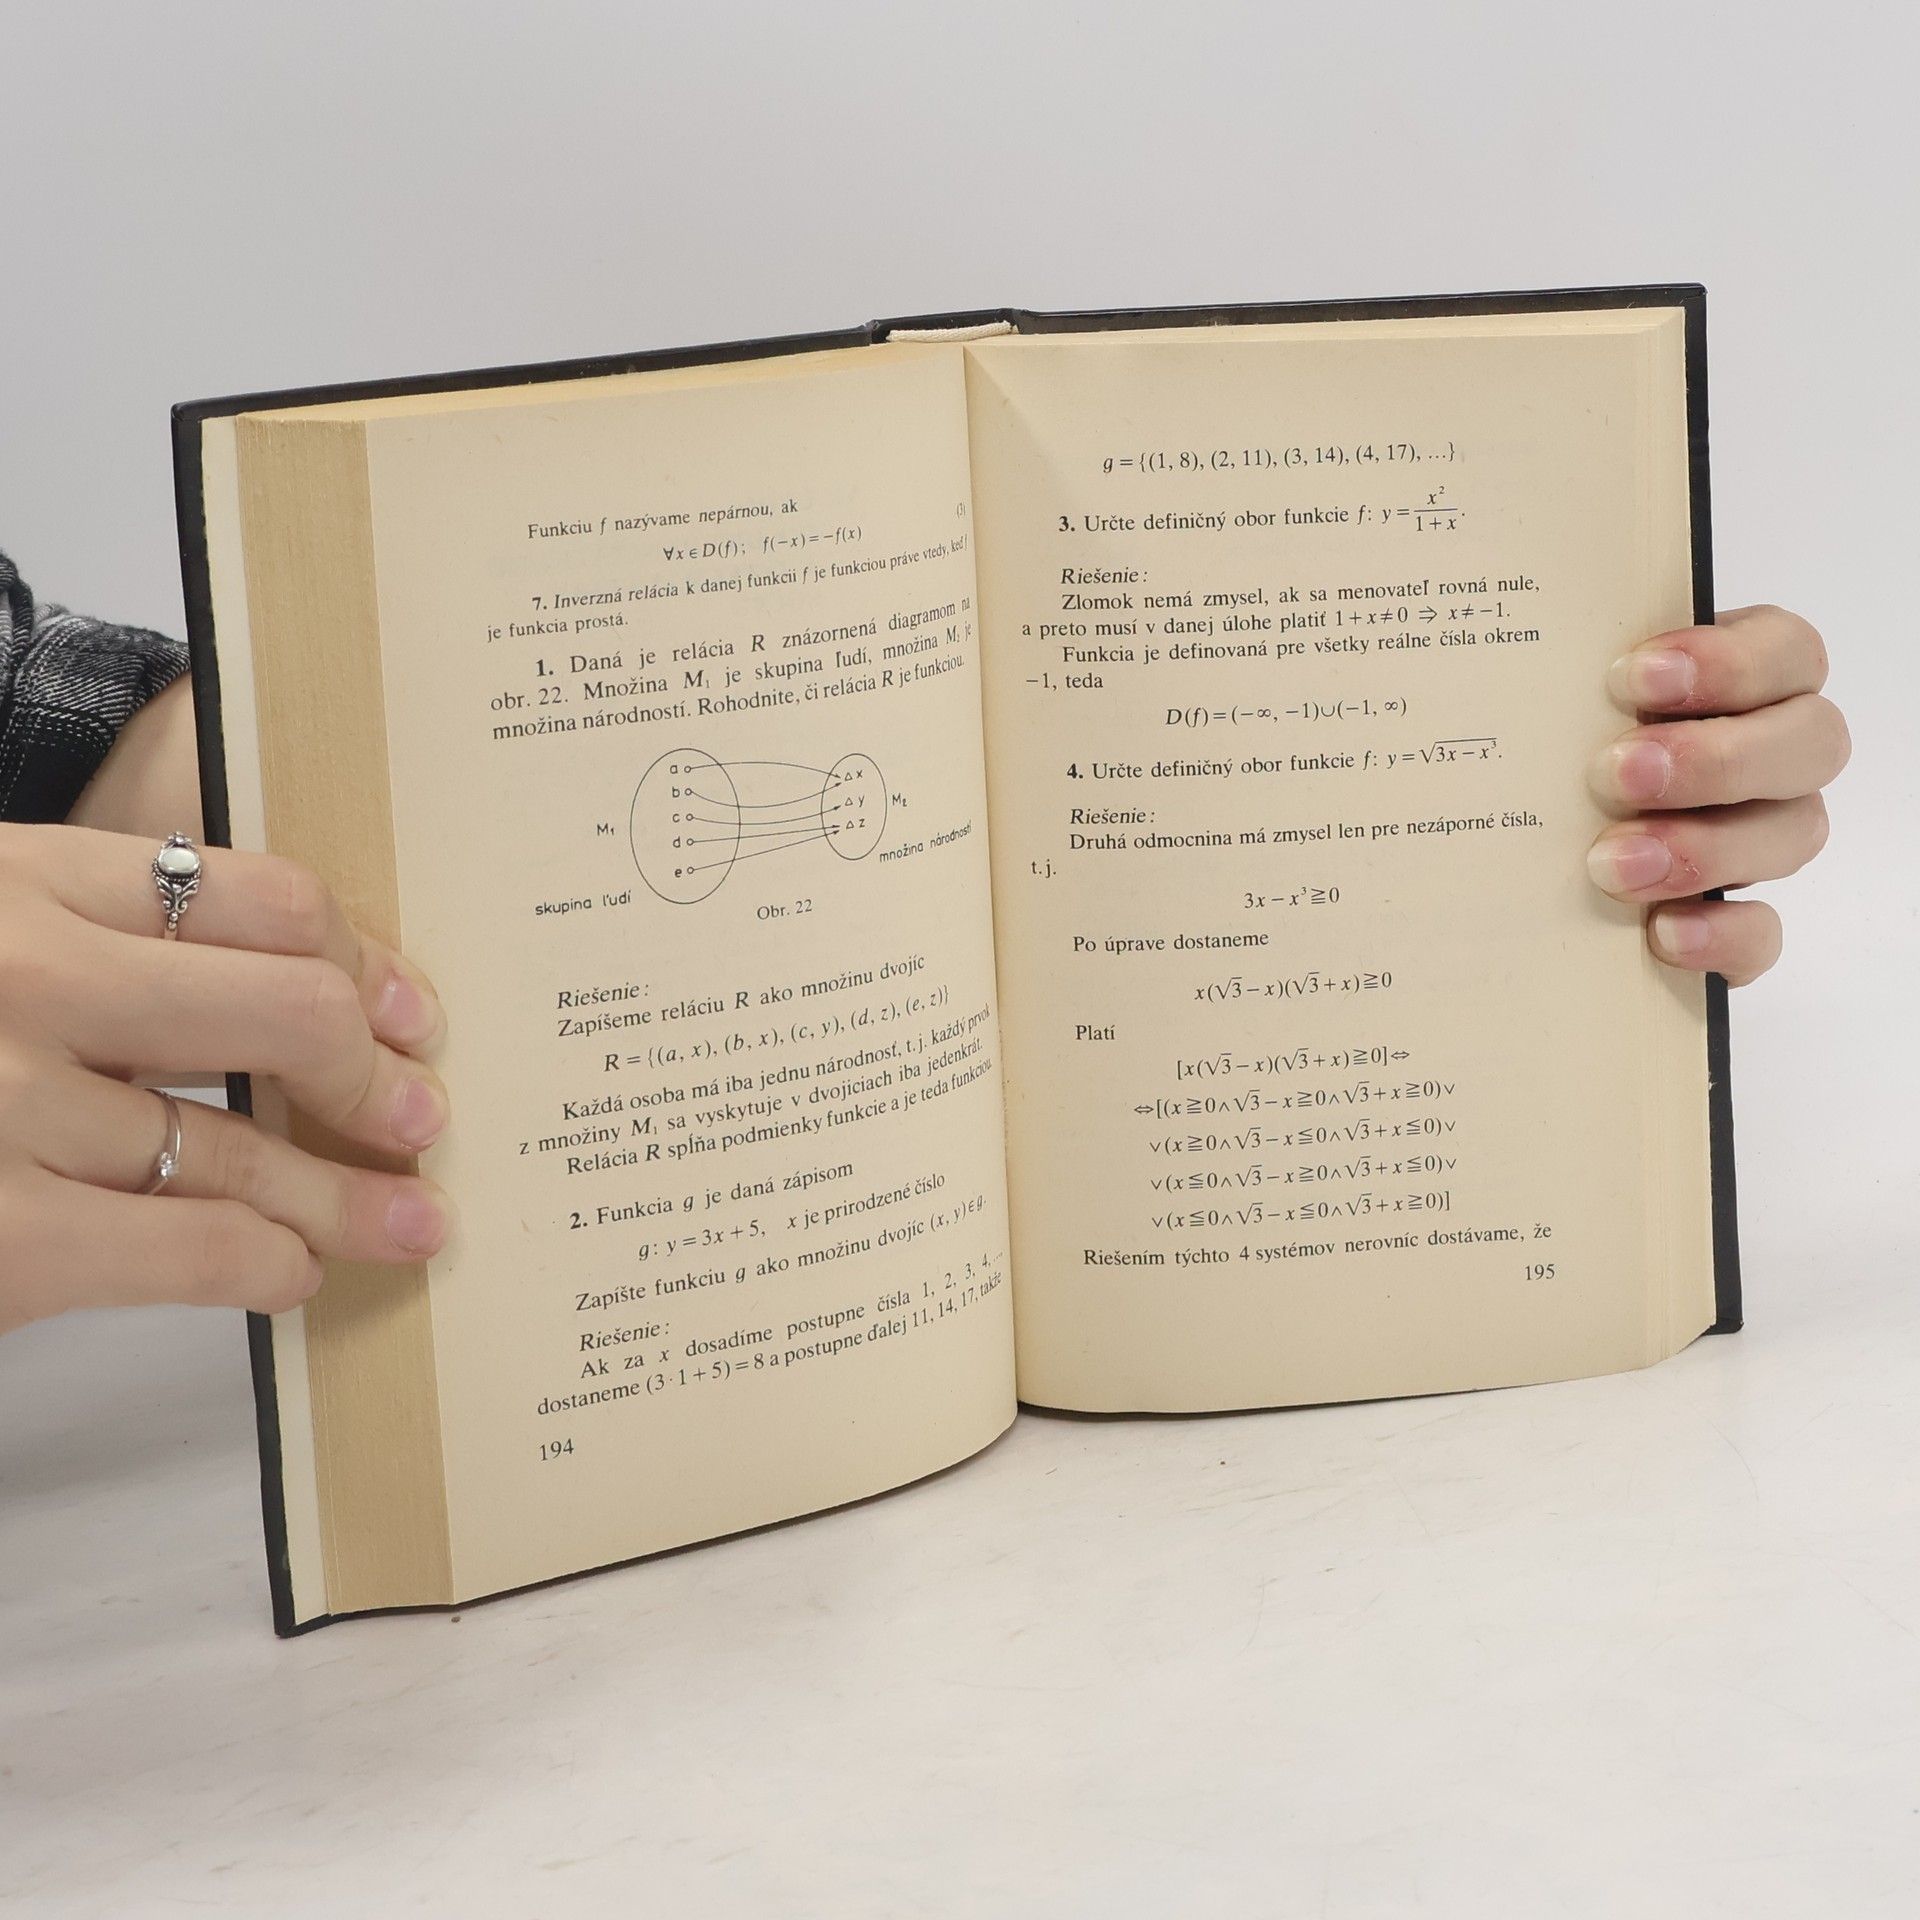 Funkciu f nazývame nepárnou, ak
∀x ∈ D(f); f(−x) = −f(x) (3)
7. Inverzná relácia k danej funkcii f je funkciou práve vtedy, keď f
je funkcia prostá.
1. Daná je relácia R znázornená diagramom na
obr. 22. Množina M₁ je skupina ľudí, množina M₂ je
množina národností. Rohodnite, či relácia R je funkciou.
a
b
c
d
e
x
y
z
M₁
M₂
množina národností
skupina ľudí
Obr. 22
Riešenie:
Zapíšeme reláciu R ako množinu dvojíc
R = {(a, x), (b, x), (c, y), (d, z), (e, z)}
Každá osoba má iba jednu národnosť, t. j. každý prvok
z množiny M₁ sa vyskytuje v dvojiciach iba jedenkrát.
Relácia R spĺňa podmienky funkcie a je teda funkciou.
2. Funkcia g je daná zápisom
g: y = 3x + 5, x je prirodzené číslo
Zapíšte funkciu g ako množinu dvojíc (x, y) ∈ g.
Riešenie:
Ak za x dosadíme postupne čísla 1, 2, 3, 4,...
dostaneme (3 · 1 + 5) = 8 a postupne ďalej 11, 14, 17, takže
194
g = {(1, 8), (2, 11), (3, 14), (4, 17), ...}
3. Určte definičný obor funkcie f: y = x²/(1 + x).
Riešenie:
Zlomok nemá zmysel, ak sa menovateľ rovná nule,
a preto musí v danej úlohe platiť 1 + x ≠ 0 ⇒ x ≠ −1.
Funkcia je definovaná pre všetky reálne čísla okrem
−1, teda
D(f) = (−∞, −1)∪(−1, ∞)
4. Určte definičný obor funkcie f: y = √(3x − x³).
Riešenie:
Druhá odmocnina má zmysel len pre nezáporné čísla,
t. j.
3x − x³ ≧ 0
Po úprave dostaneme
x(√3 − x)(√3 + x) ≧ 0
Platí
[x(√3 − x)(√3 + x) ≧ 0] ⇔
⇔ [(x ≧ 0 ∧ √3 − x ≧ 0 ∧ √3 + x ≧ 0) ∨
∨ (x ≧ 0 ∧ √3 − x ≦ 0 ∧ √3 + x ≦ 0) ∨
∨ (x ≦ 0 ∧ √3 − x ≧ 0 ∧ √3 + x ≦ 0) ∨
∨ (x ≦ 0 ∧ √3 − x ≦ 0 ∧ √3 + x ≧ 0)]
Riešením týchto 4 systémov nerovníc dostávame, že
195